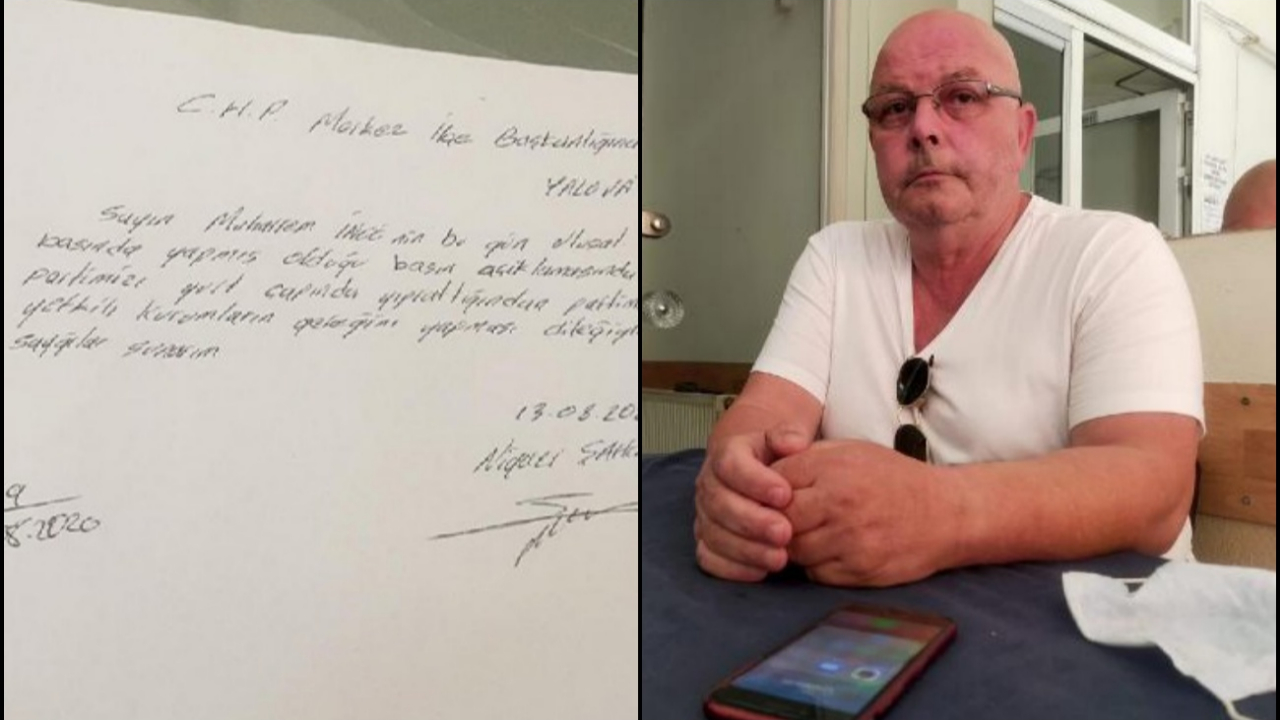 C.H.P. Merkez İlçe Başkanlığına
YALOVA
Sayın Muharrem İNCE nin bu gün ulusal
basında yapmış olduğu basın açıklamasında
partimizi yurt çapında yıprattığından
yetkili kurumların gereğini yapması dileğiyle
saygılar sunarım
13.08.20
Niyazi
8.2020